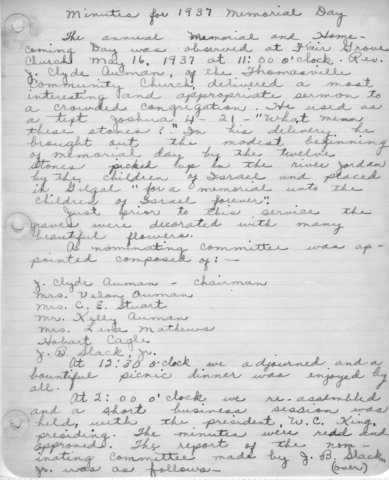 Minutes for 1937 Memorial Day
The annual Memorial and Home-
coming Day was observed at Fair Grove
Church May 16, 1937 at 11:00 o'clock. Rev.
J. Clyde Auman, of the Thomasville
Community Church, delivered a most
interesting and appropriate sermon to
a crowded congregation. He used as
a text Joshua 4-21-"What mean
these stones?" In his delivery he
brought out the modest beginning
of memorial day by the twelve
stones picked up in the river Jordan
by the children of Israel and placed
in Gilgal "for a memorial unto the
children of Israel forever".
Just prior to this service the
graves were decorated with many
beautiful flowers.
A nominating committee was ap-
pointed composed of:—
J. Clyde Auman - chairman
Mrs. Velon Auman
Mrs. C. E. Stuart
Mr. Kelly Auman
Mrs. Lena Mathews
Hobart Cagle
J. B. Slack, Jr.
At 12:30 o'clock we adjourned and a
bountiful picnic dinner was enjoyed by
all.
At 2:00 o'clock we re-assembled
and a short business session was
held, with the president, W. C. King,
presiding. The minutes were read and
approved. The report of the nom-
inating committee made by J. B. Slack,
Jr. was as follows— (over)